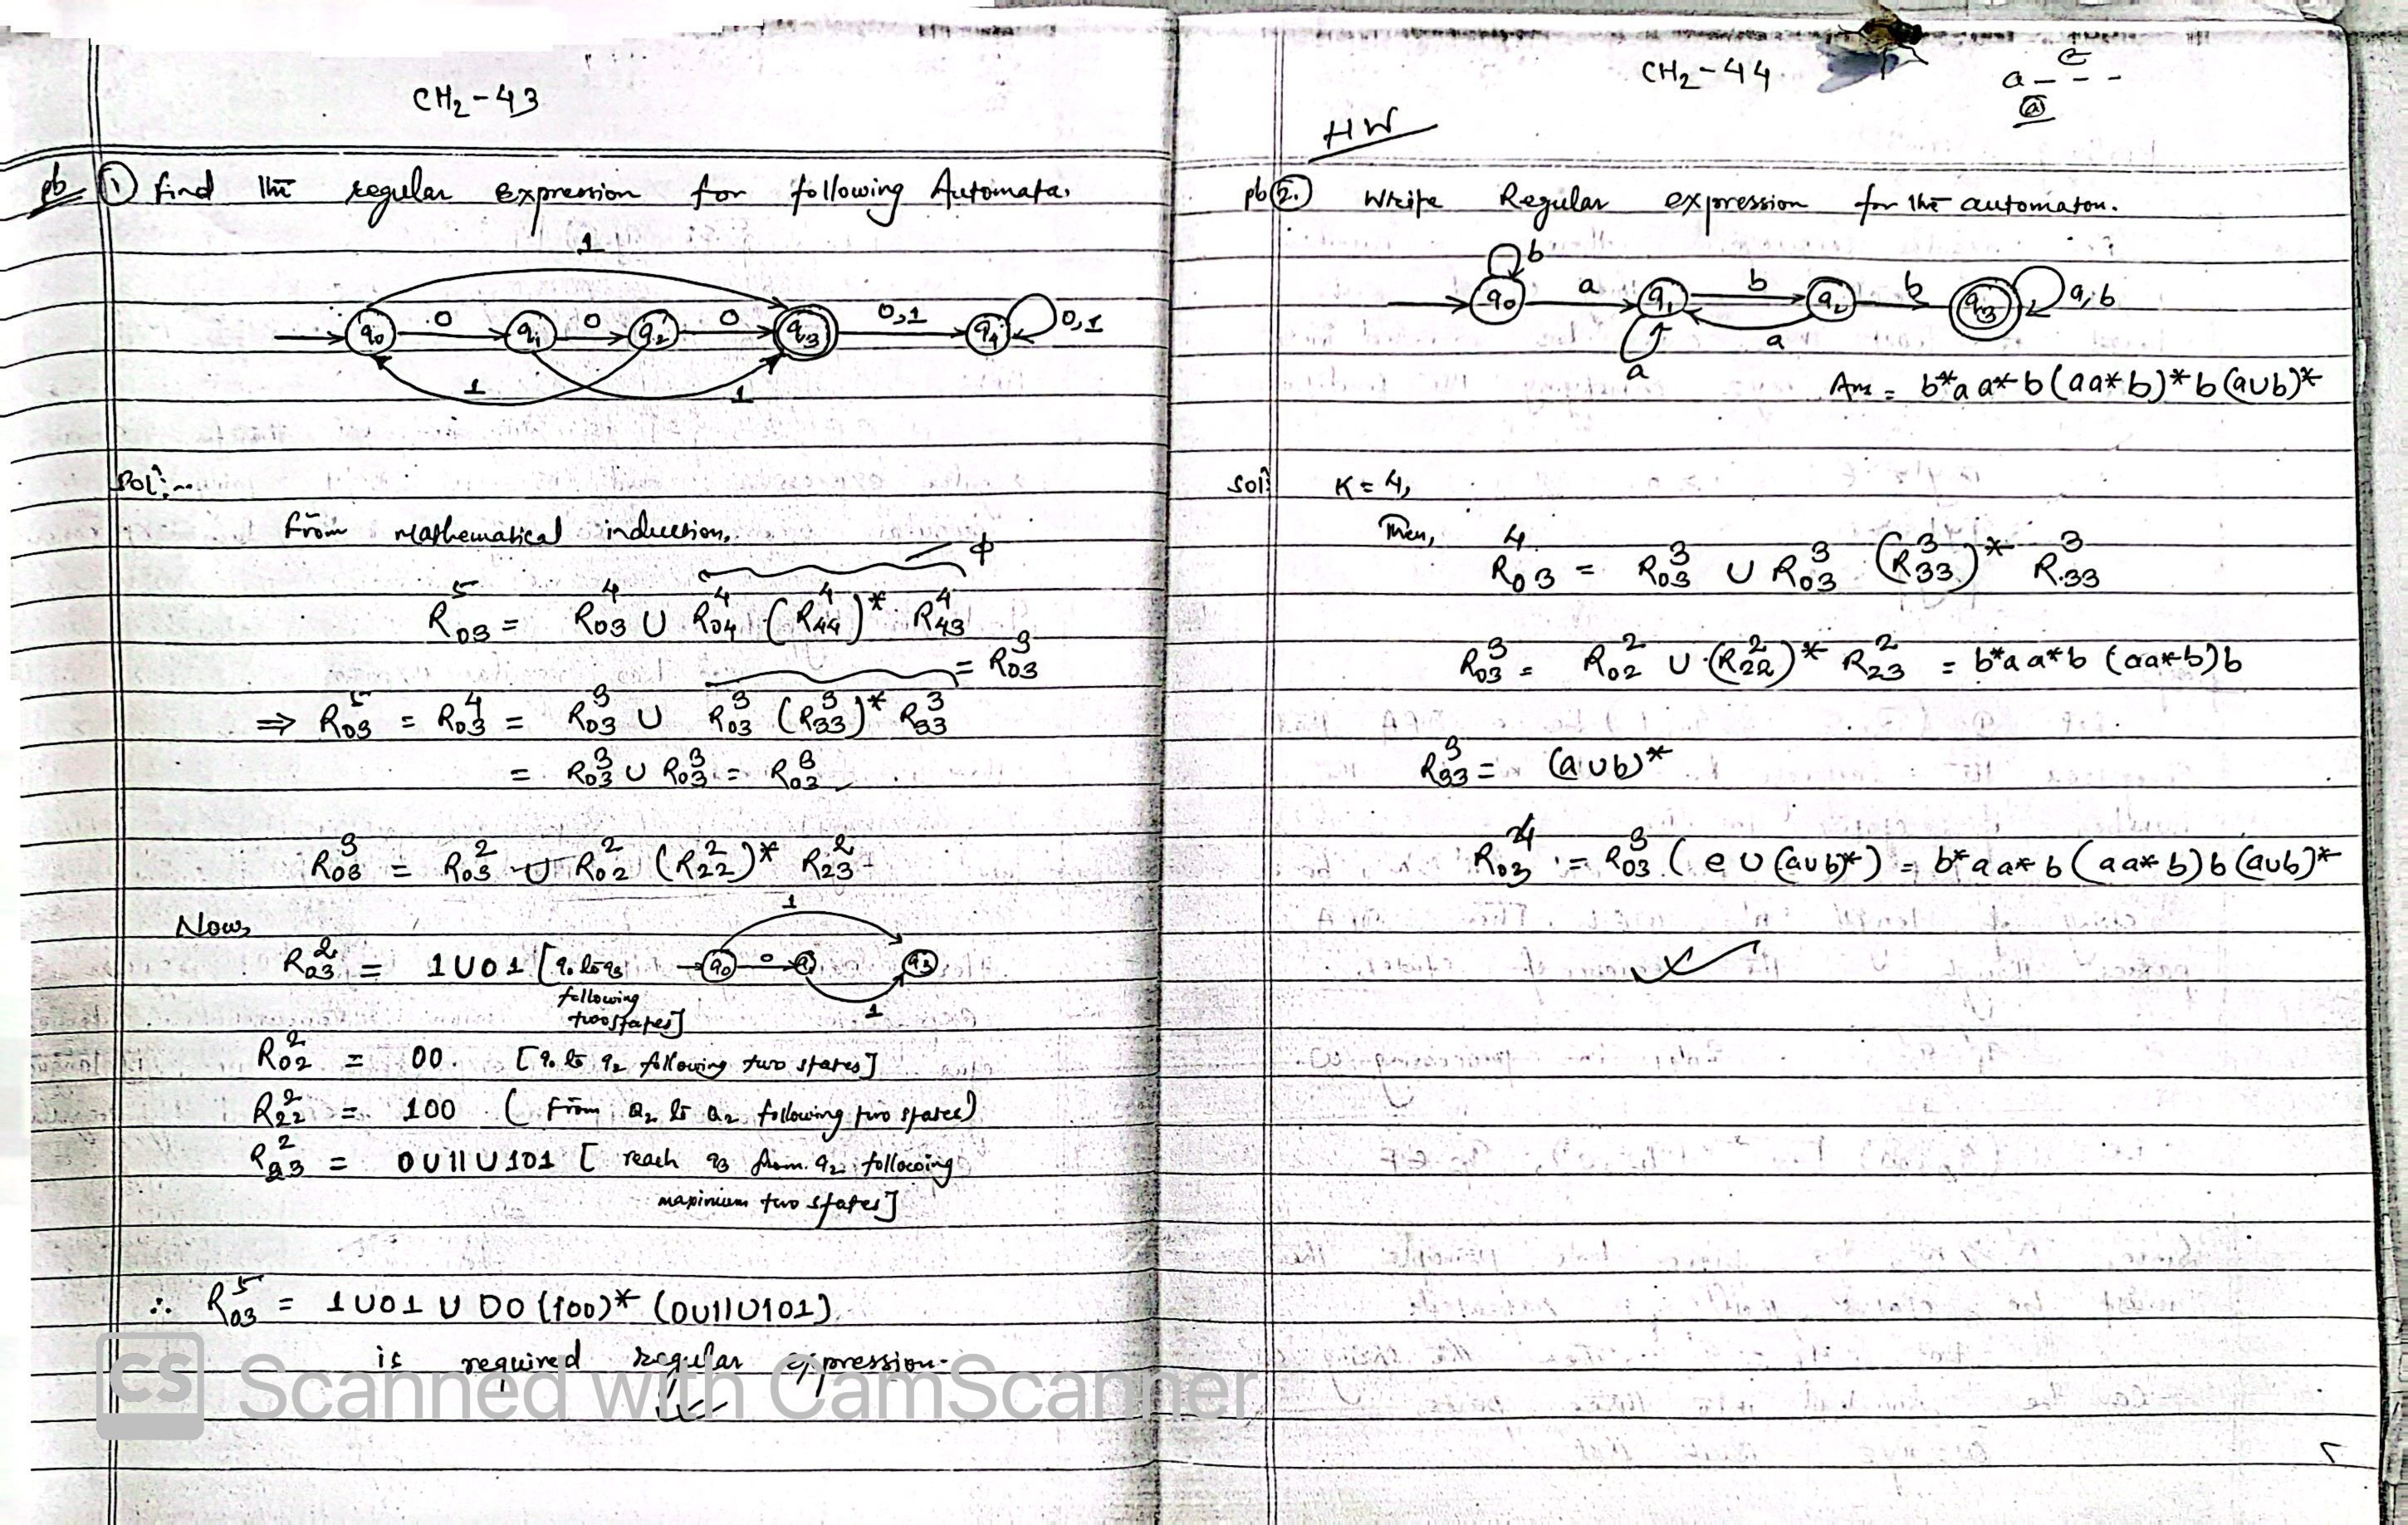 CH₂-43
pb ① find the regular expression for following Automata.
1
q₀ 0 q₁ 0 q₂ 0 q₃ 0,1 q₄ 0,1
1 1
Sol:-
From mathematical induction,
φ
R₀₃⁵ = R₀₃⁴ ∪ R₀₄⁴ (R₄₄⁴)* R₄₃⁴
= R₀₃³
⇒ R₀₃⁵ = R₀₃⁴ = R₀₃³ ∪ R₀₃³ (R₃₃³)* R₃₃³
= R₀₃³ ∪ R₀₃³ = R₀₃³
R₀₃³ = R₀₃² ∪ R₀₂² (R₂₂²)* R₂₃²
Now,
1
R₀₃² = 1∪01 [q₀ to q₃ following two states] q₀ 0 q₁ q₃
1
R₀₂² = 00. [q₀ to q₂ following two states]
R₂₂² = 100 (From q₂ to q₂ following two states)
R₂₃² = 0∪11∪101 [reach q₃ from q₂ following
maximum two states]
∴ R₀₃⁵ = 1∪01 ∪ 00(100)* (0∪11∪101)
is required regular expression.
CS Scanned with CamScanner
CH₂-44
a - - -
e
ⓐ
HW
pb ②. Write Regular expression for the automaton.
b
q₀ a q₁ b q₂ b q₃ a,b
a
a
Ans = b*aa*b(aa*b)*b(a∪b)*
Sol: K=4,
Then, R₀₃⁴ = R₀₃³ ∪ R₀₃³ (R₃₃³)* R₃₃³
R₀₃³ = R₀₂² ∪ (R₂₂²)* R₂₃² = b*aa*b (aa*b)b
R₃₃³ = (a∪b)*
R₀₃⁴ = R₀₃³ (e∪(a∪b)*) = b*aa*b(aa*b)b(a∪b)*